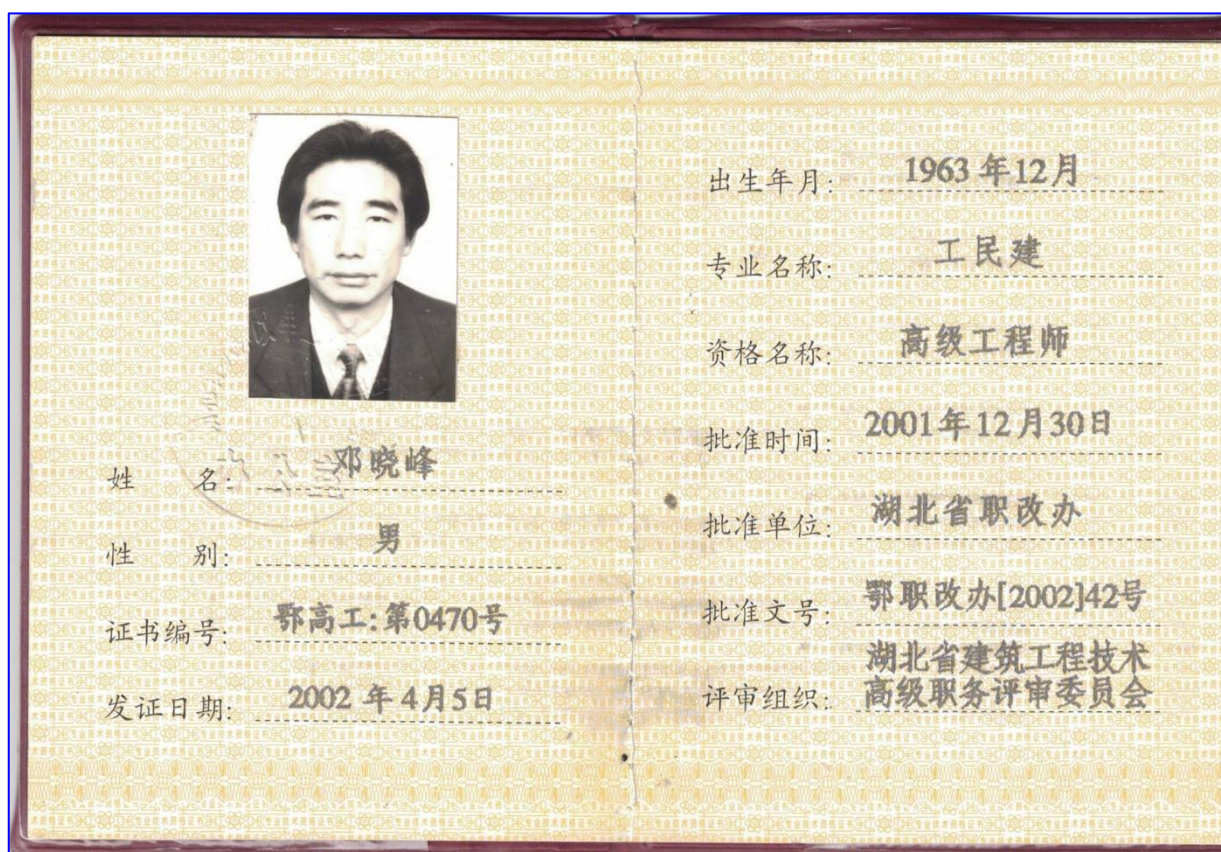 姓 名: 邓晓峰
性 别: 男
证书编号: 鄂高工:第0470号
发证日期: 2002年4月5日
出生年月: 1963年12月
专业名称: 工民建
资格名称: 高级工程师
批准时间: 2001年12月30日
批准单位: 湖北省职改办
批准文号: 鄂职改办[2002]42号
湖北省建筑工程技术
评审组织: 高级职务评审委员会